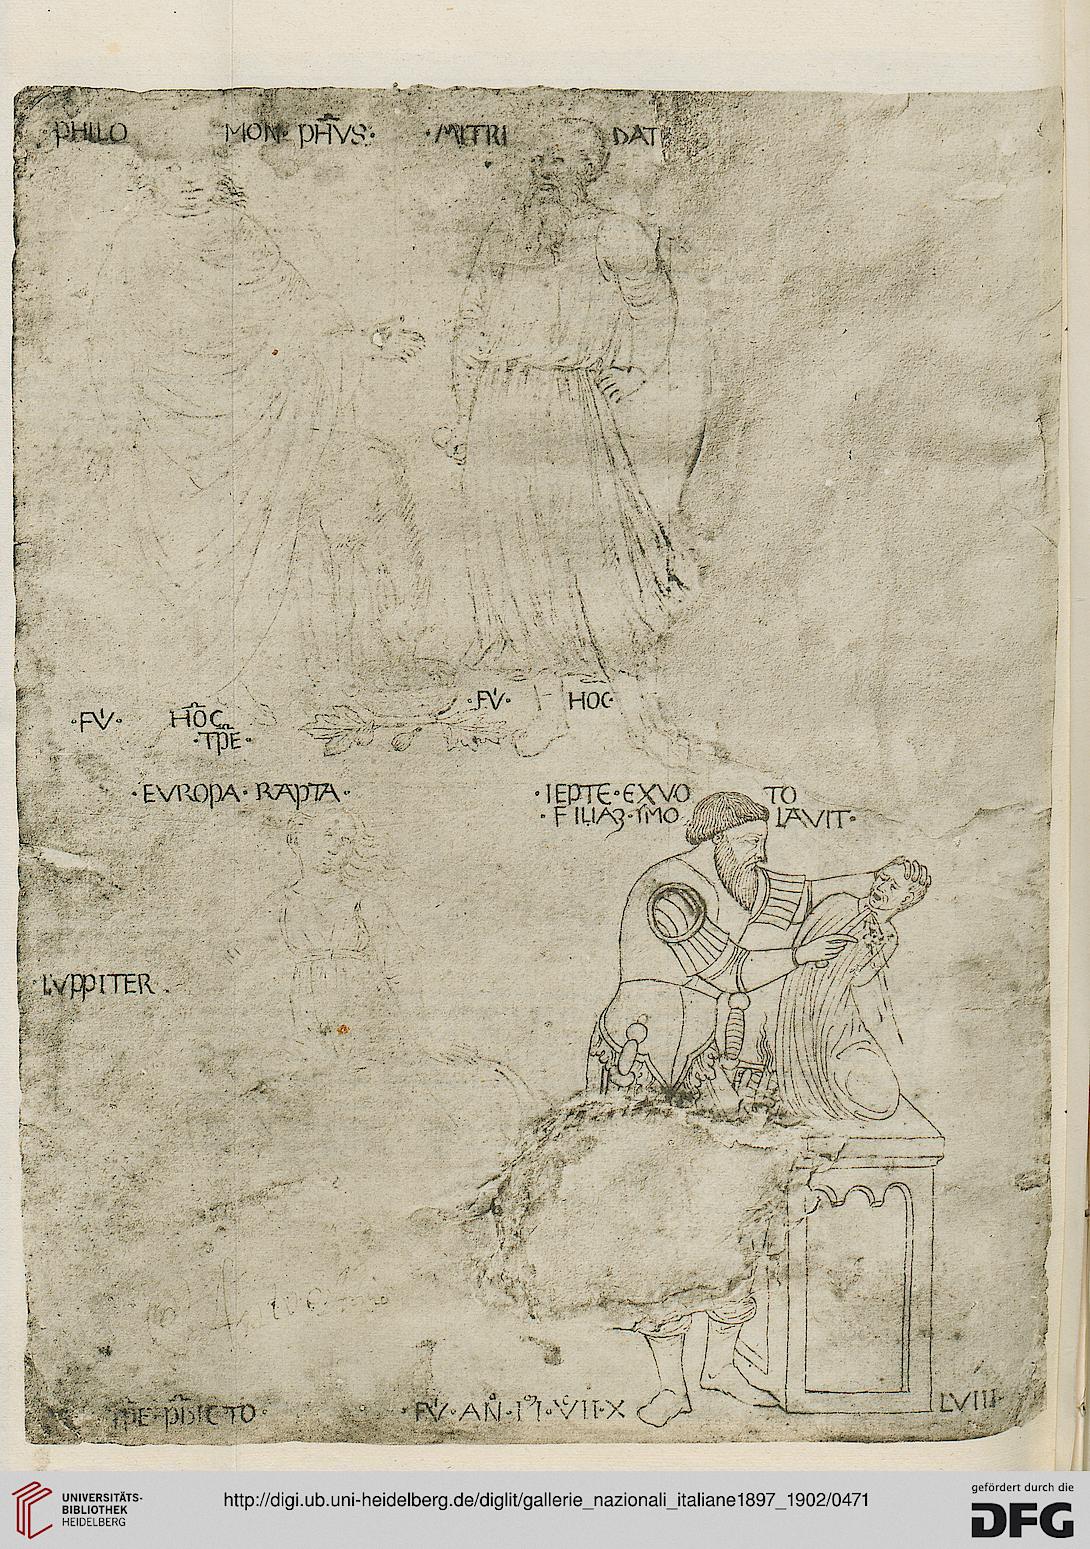 PHILO MON· PH̄VS· ·MITRI DAT
·FV· HŌC
·TP̄E·
·FV· HOC·
·EVROPA· RAPTA·
·IEPTE·EXVO TO
·FILIAꝫ·IMO LAVIT·
IVPPITER.
TP̄E·PDICTO·
·FV·AN̄· VII·X LVIII·
UNIVERSITÄTS-
BIBLIOTHEK
HEIDELBERG
http://digi.ub.uni-heidelberg.de/diglit/gallerie_nazionali_italiane1897_1902/0471
gefördert durch die
DFG